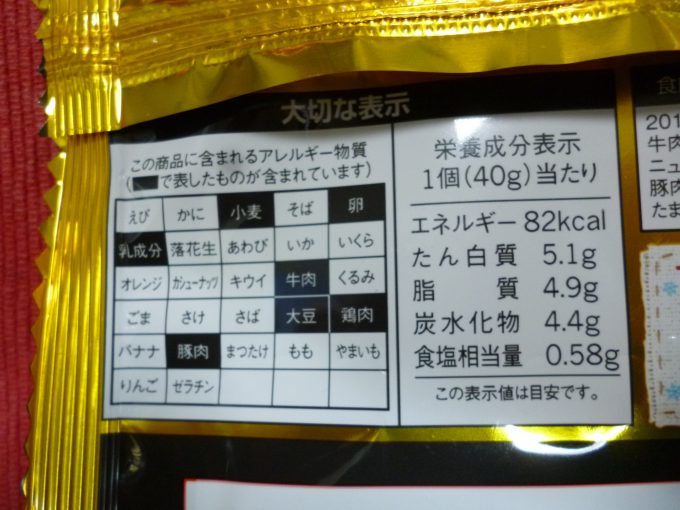 大切な表示
この商品に含まれるアレルギー物質
(■で表したものが含まれています)
えび かに 小麦 そば 卵
乳成分 落花生 あわび いか いくら
オレンジ カシューナッツ キウイ 牛肉 くるみ
ごま さけ さば 大豆 鶏肉
バナナ 豚肉 まつたけ もも やまいも
りんご ゼラチン
栄養成分表示
1個(40g)当たり
エネルギー 82kcal
たん白質 5.1g
脂質 4.9g
炭水化物 4.4g
食塩相当量 0.58g
この表示値は目安です。
食
201
牛肉
ニュ
豚肉
たま